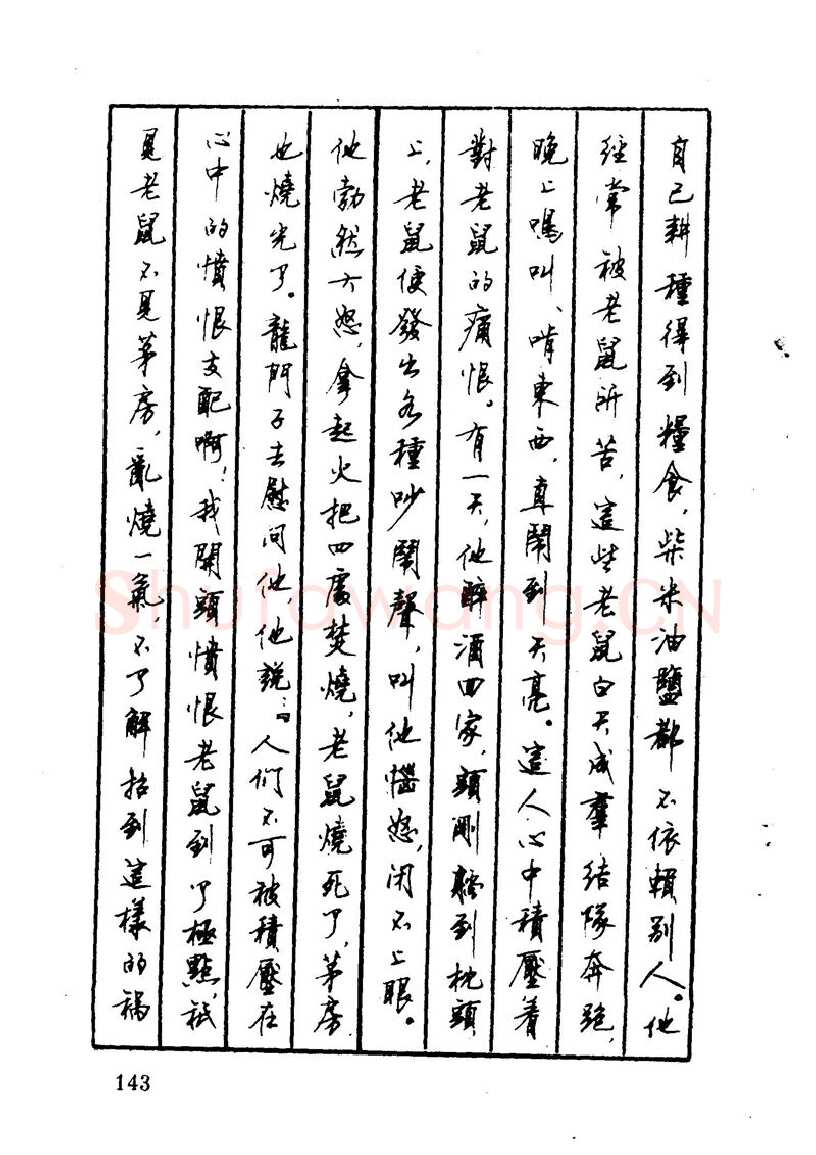 自己耕種得到糧食，柴米油鹽都不依賴別人。他
經常被老鼠所苦，這些老鼠白天成羣結隊奔跑，
晚上嘷叫、啃東西，直鬧到天亮。這人心中積壓着
對老鼠的痛恨。有一天，他醉酒回家，頭剛躺到枕頭
上，老鼠便發出各種吵鬧聲，叫他惱怒，闭不上眼。
他勃然大怒，拿起火把四處焚燒，老鼠燒死了，茅房
也燒光了。龍門子去慰问他，他説：“人们不可被積壓在
心中的憤恨支配啊！我開頭憤恨老鼠到了極點，祇
見老鼠不見茅房，亂燒一氣，不了解招到這樣的禍
143
Shufawang.CN